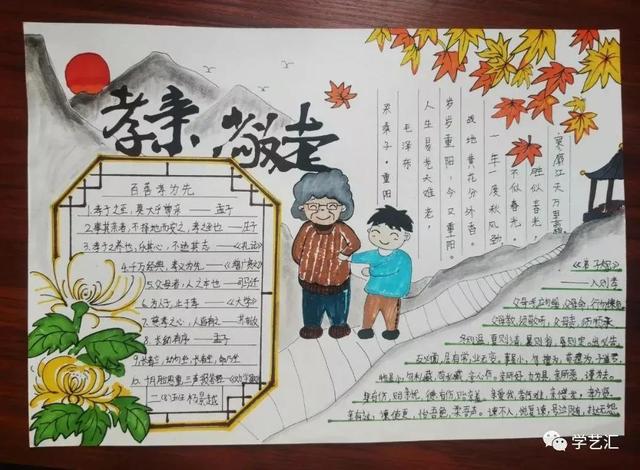 孝亲敬老
百善孝为先
1.孝子之至,莫大乎尊亲——孟子
2.事其亲者,不择地而安之,孝之至也——庄子
3.孝子之养也,乐其心,不违其志——《礼记》
4.千万经典,孝义为先——《增广贤文》
5.父母者,人之本也——司马迁
6.为人子,止于孝——《大学》
7.慈孝之心,人皆有之——
8.长幼有序——孟子
9.长者立,幼勿坐,长者坐,命乃坐
10.十月胎恩重,三生报答轻——《劝孝歌》
二(8)班 杨景越
采桑子·重阳
毛泽东
人生易老天难老,
岁岁重阳,今又重阳。
战地黄花分外香。
一年一度秋风劲
不似春光。
胜似春光,
寥廓江天万里霜
《弟子规》
——入则孝
父母呼,应勿缓,父母命,行勿懒
父母教,须敬听,父母责,须顺承
冬则温,夏则凊,晨则省,昏则定,出必告
反必面,居有常,业无变,事虽小,勿擅为,苟擅为,子道亏
物虽小,勿私藏,苟私藏,亲心伤,亲所好,力为具,亲所恶,谨为去。
身有伤,贻亲忧,德有伤,贻亲羞,亲爱我,孝何难,亲憎我,孝方贤。
亲有过,谏使更,怡吾色,柔吾声。谏不入,悦复谏,号泣随,挞无怨
学艺汇